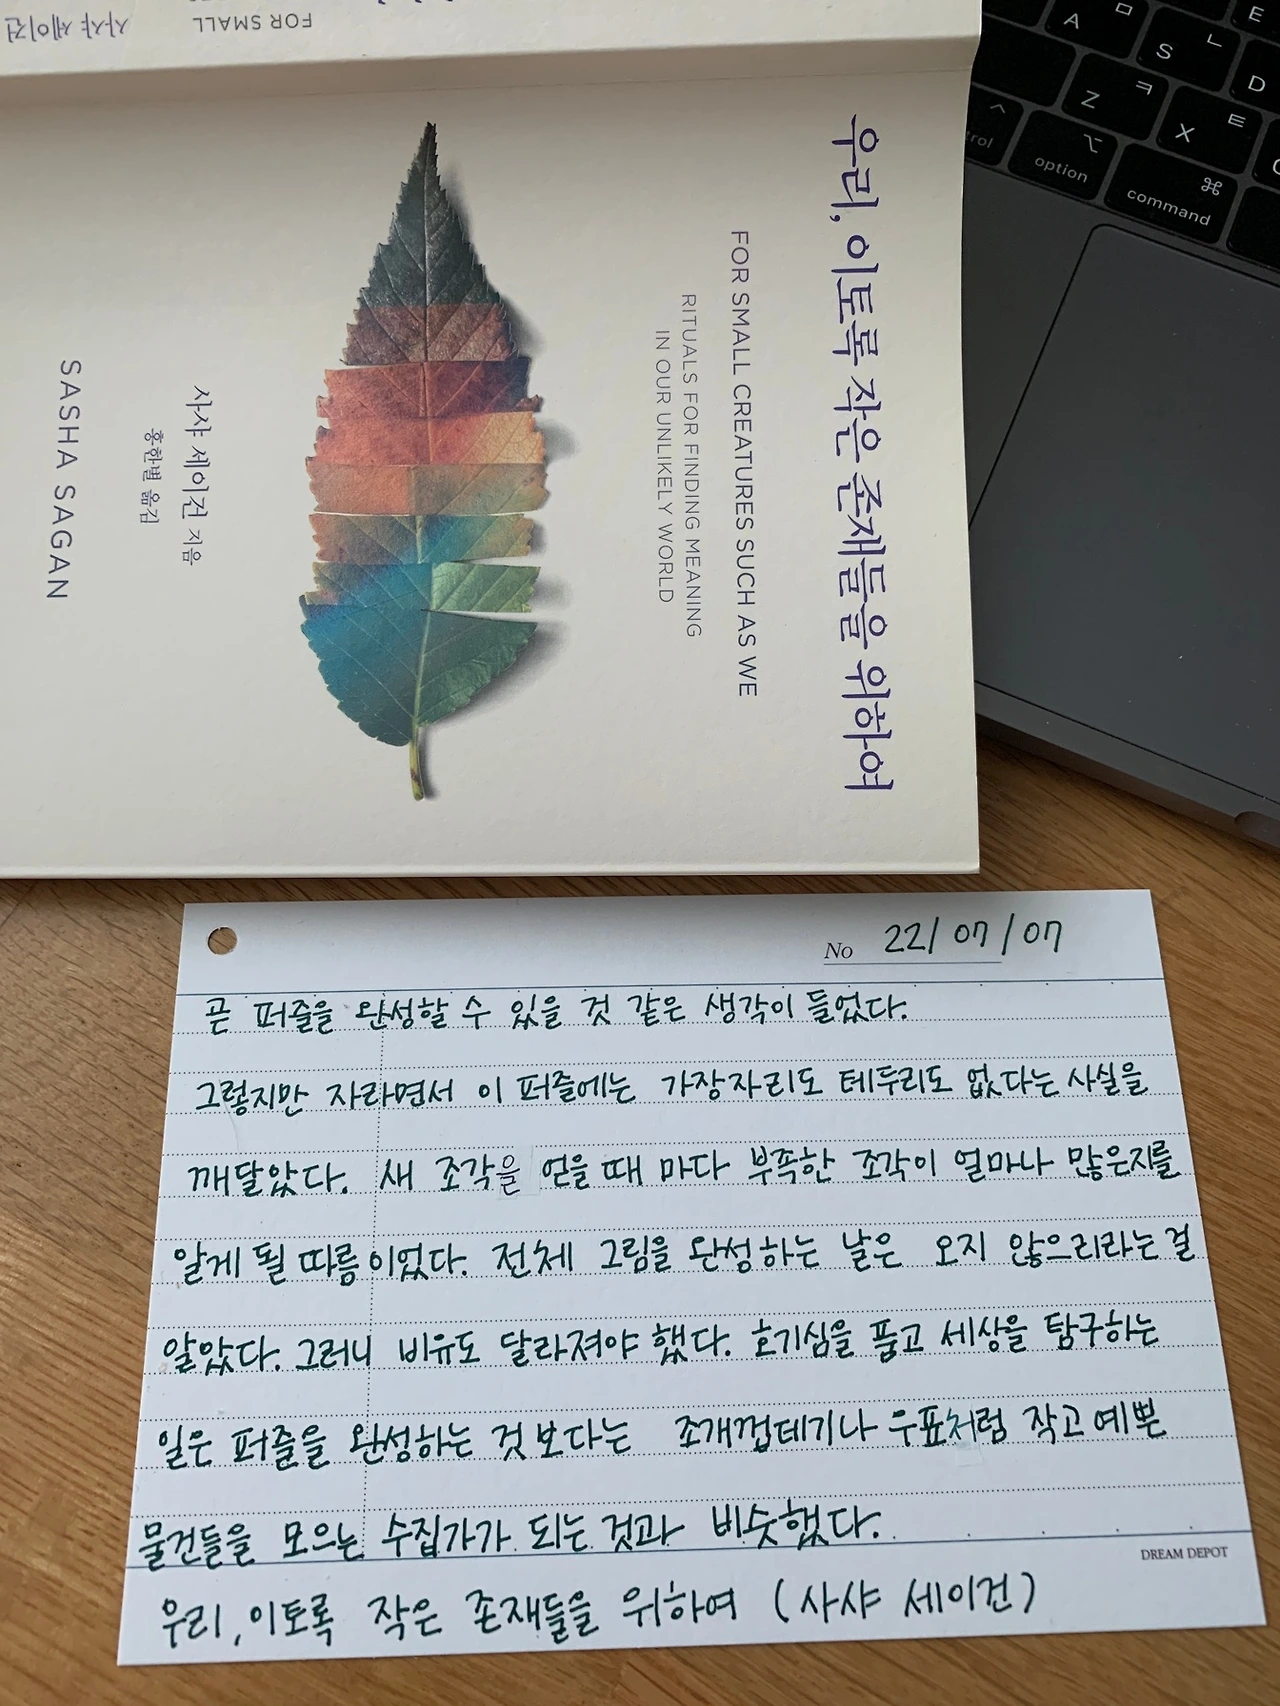 사샤 세이건
FOR SMALL
우리, 이토록 작은 존재들을 위하여
FOR SMALL CREATURES SUCH AS WE
RITUALS FOR FINDING MEANING
IN OUR UNLIKELY WORLD
사샤 세이건 지음
홍한별 옮김
SASHA SAGAN
A ㅁ
S ㄴ
D
E
Z ㅋ
X ㅌ
option
command
No 22/07/07
곧 퍼즐을 완성할 수 있을 것 같은 생각이 들었다.
그렇지만 자라면서 이 퍼즐에는 가장자리도 테두리도 없다는 사실을
깨달았다. 새 조각을 얻을 때 마다 부족한 조각이 얼마나 많은지를
알게 될 따름이었다. 전체 그림을 완성하는 날은 오지 않으리라는 걸
알았다. 그러니 비유도 달라져야 했다. 호기심을 품고 세상을 탐구하는
일은 퍼즐을 완성하는 것 보다는 조개껍데기나 우표처럼 작고 예쁜
물건들을 모으는 수집가가 되는 것과 비슷했다.
DREAM DEPOT
우리, 이토록 작은 존재들을 위하여 (사샤 세이건)